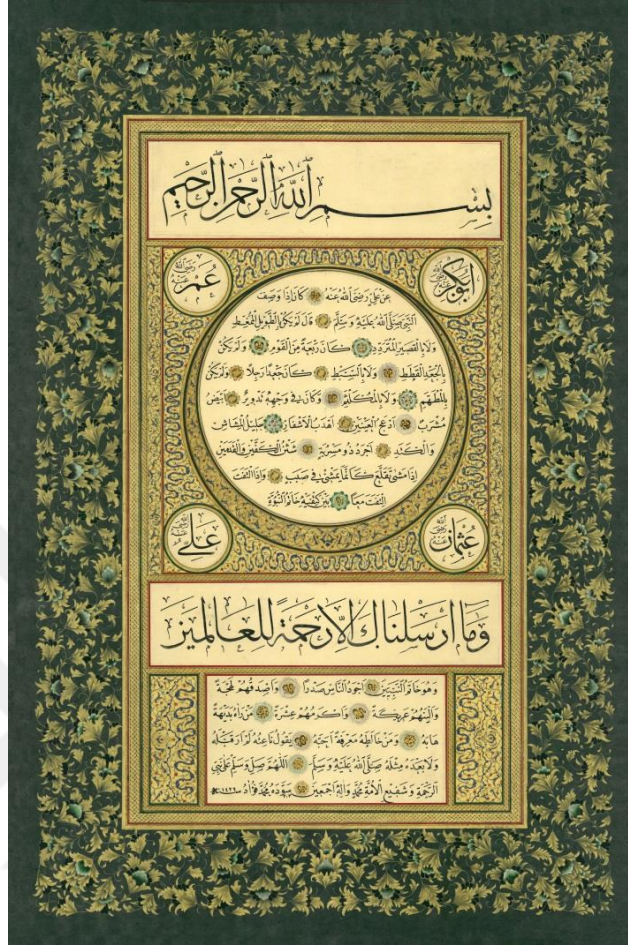 بسم الله الرحمن الرحيم
ابوبكر رضي الله عنه
عمر رضي الله عنه
عَنْ عَلِيٍّ رَضِيَ اللهُ عَنْهُ كَانَ اِذَا وَصَفَ
النَّبِيَّ صَلَّى اللهُ عَلَيْهِ وَسَلَّمَ قَالَ لَمْ يَكُنْ بِالطَّوِيلِ الْمُمَّغِطِ
وَلَا بِالْقَصِيرِ الْمُتَرَدِّدِ كَانَ رَبْعَةً مِنَ الْقَوْمِ وَلَمْ يَكُنْ
بِالْجَعْدِ الْقَطَطِ وَلَا بِالسَّبْطِ كَانَ جَعْدًا رَجِلًا وَلَمْ يَكُنْ
بِالْمُطَهَّمِ وَلَا بِالْمُكَلْثَمِ وَكَانَ فِي وَجْهِهِ تَدْوِيرٌ اَبْيَضُ
مُشْرَبٌ اَدْعَجُ الْعَيْنَيْنِ اَهْدَبُ الْاَشْفَارِ جَلِيلُ الْمُشَاشِ
وَالْكَتَدِ اَجْرَدُ ذُو مَسْرُبَةٍ شَثْنُ الْكَفَّيْنِ وَالْقَدَمَيْنِ
اِذَا مَشَى تَقَلَّعَ كَاَنَّمَا يَمْشِي فِي صَبَبٍ وَاِذَا الْتَفَتَ
اِلْتَفَتَ مَعًا بَيْنَ كَتِفَيْهِ خَاتَمُ النُّبُوَّةِ
عثمان رضي الله عنه
علي رضي الله عنه
وما ارسلناك الا رحمة للعالمين
وَهُوَ خَاتَمُ النَّبِيِّينَ اَجْوَدُ النَّاسِ صَدْرًا وَاَصْدَقُهُمْ لَهْجَةً
وَاَلْيَنُهُمْ عَرِيكَةً وَاَكْرَمُهُمْ عِشْرَةً مَنْ رَاٰهُ بَدِيهَةً
هَابَهُ وَمَنْ خَالَطَهُ مَعْرِفَةً اَحَبَّهُ يَقُولُ نَاعِتُهُ لَمْ اَرَ قَبْلَهُ
وَلَا بَعْدَهُ مِثْلَهُ صَلَّى اللهُ عَلَيْهِ وَسَلَّمَ اَللّٰهُمَّ صَلِّ وَسَلِّمْ عَلَى نَبِيِّ
الرَّحْمَةِ وَشَفِيعِ الْاُمَّةِ مُحَمَّدٍ وَاٰلِهِ اَجْمَعِينَ سَوَّدَهُ مُحَمَّد فُؤَاد